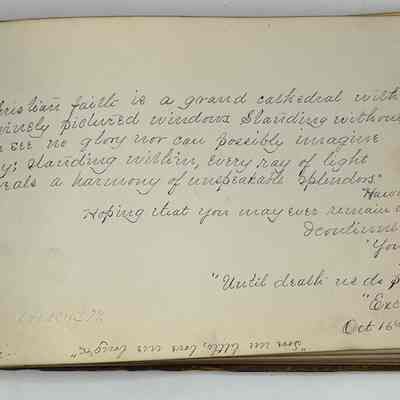 ristian faith is a grand cathedral with
vinely pictured windows Standing without
see no glory nor can possibly imagine
y; standing within, every ray of light
eals a harmony of unspeakable splendors."
Haw
Hoping that you may ever remain
I continue
You
"Until death us do p
"Exc
Oct 16
"love me little, love me long."